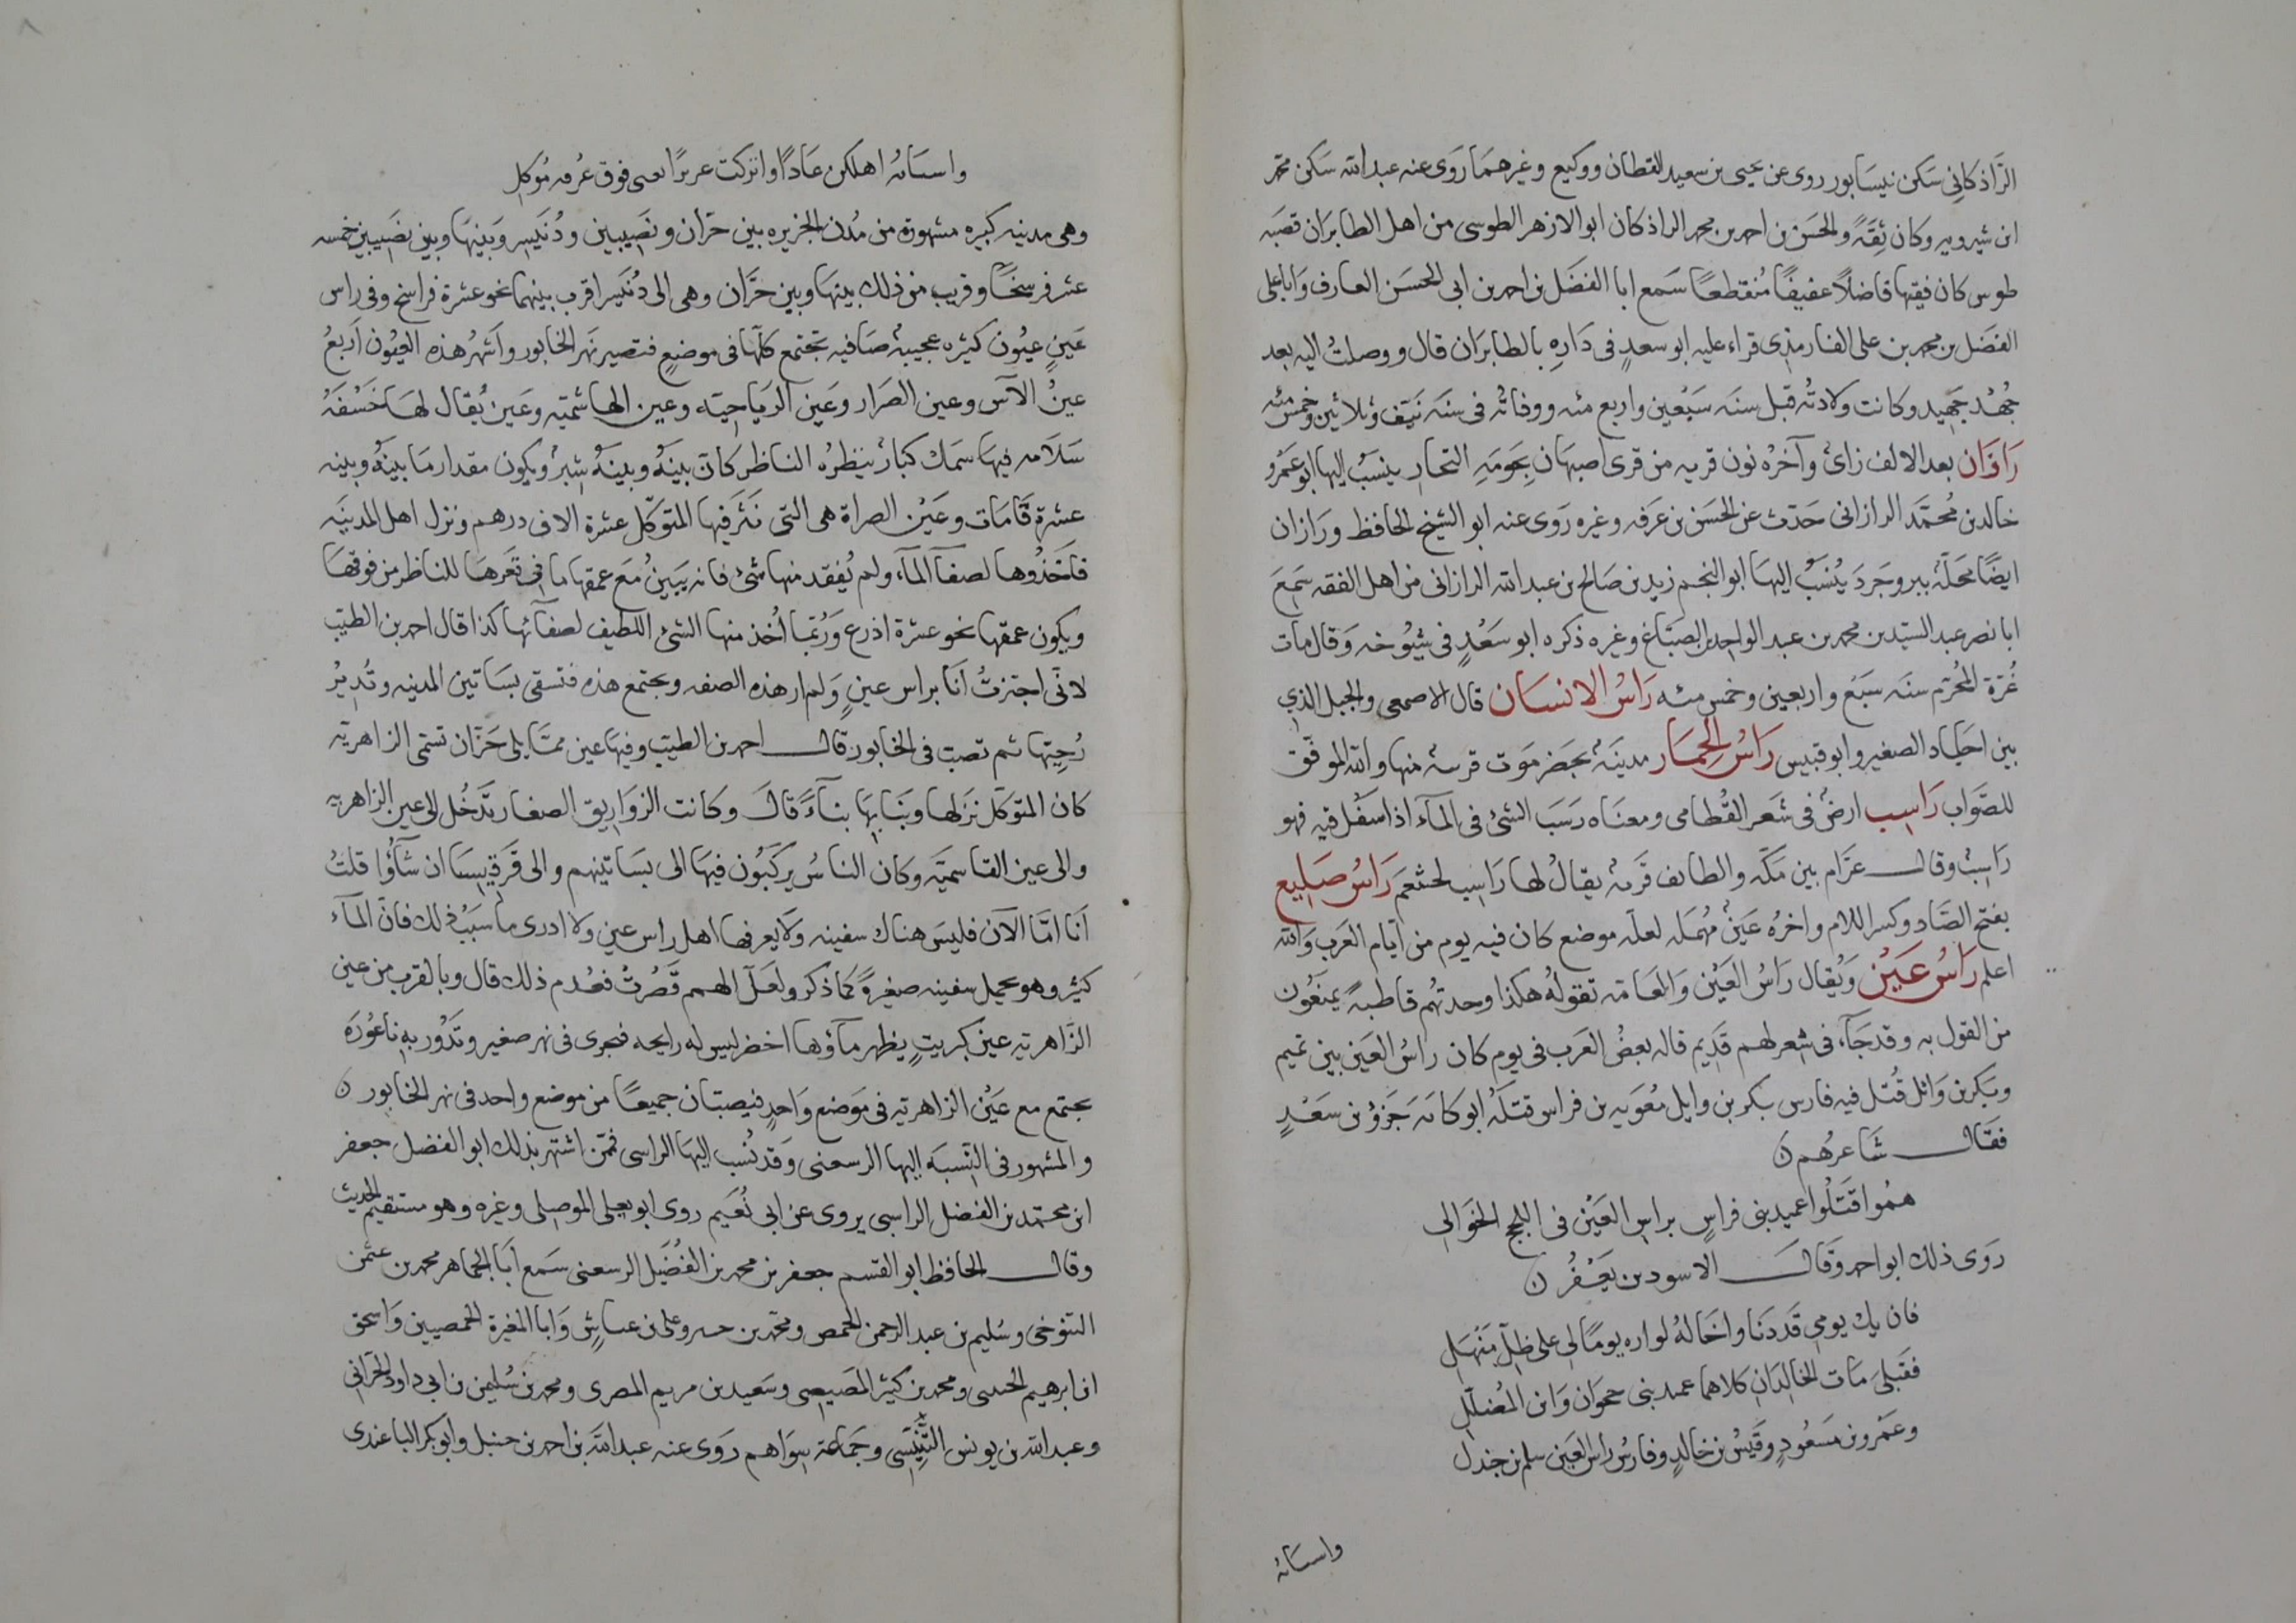 الرَّاذكانى سَكن نيسَابور روى عن يحيى بن سعيد القطان ووكيع وغيرهمَا رَوَى عنه عبدالله سَكن محمد
ابن شيرويه وكان ثِقَةً والحَسَن بن احمد بن محمد الراذكان ابو الازهر الطوسى من اهل الطابَرَان قصَبه
طوس كان فقيها فاضلاً عفيفًا مُنقطعًا سَمع ابا الفضَل بن احمد بن ابى الحسَن العارف وَاباعلى
الفضَل بن محمد بن على الفارمذى قراء عليه ابو سعدٍ فى دَارِهِ بالطابَرَان قال ووصلتُ اليه بعد
جُهْد جَهِيد وكانت ولادتُه قبل سنَه سَبْعين واربع مئه ووفاتُه فى سنَه نيَّف وثلاثين وخمس مئه
رَازَان بعد الالف زائ وآخرُه نون قريه من قرى اصبهَان بِحَومَهِ التجار ينسَبُ اليها ابو عَمرو
خالد بن مُحمَّد الرازانى حَدّث عن الحَسَن بن عَرَفه وغيره رَوى عنه ابو الشيخ الحافظ ورَازان
ايضًا محَلّة ببروجَرد يُنسَبُ اليهَا ابو النجم زيد بن صَالح بن عبدالله الرازانى من اهل الفقه سَمِعَ
ابا نصر عبد السَيّد بن محمد بن عبد الواحد بن الصبَّاغ وغيره ذكره ابو سَعْدٍ فى شيُوخه وَقال مات
غُرّة المحُرّم سنَه سَبَع واربعين وخمس مئه رَاسُ الانسَان قال الاصمعى والجبل الذي
بين اجياد الصغير وابو قبيس رَاسُ الحِمَار مدينَةُ بحَضرَمَوت قريبه منها والله الموفّق
للصَواب رَاسِب ارضُ فى شَعر القُطامى ومعنَاه رَسَبَ الشئ فى المآء اذا سَفُل فيه فهو
رَاسِبُ وقال عرّام بين مَكّه والطائف قَريه يقالُ لها رَاسِب لخثعَم رَاسُ صَلِيع
بفتح الصَّاد وكسر اللام واخرُه عَينُ مُهمَله لعلّه موضع كان فيه يوم من ايّام العَرب وَالله
اعلم رَاسُ عَيْن وَيُقال رَاسُ العَيْن وَالعَامّه تقولُه هكذا وحدتهُم قاطبهً يمنعَون
من القول به وقد جَآء فى شعر لهم قَدِيم قاله بعضُ العَرب فى يوم كان راسُ العَين بين تميم
وبَكر بن وَائل قُتل فيه فارس بَكر بن وايل مُعوَيه بن فراس قتلَهُ ابو كابَه جَزؤ بن سَعْدٍ
فقَال شَاعرُهم
همُوا قَتَلُوا عميد بنى فراسٍ براس العَيْن فى اللجج الخوَالى
رَوَى ذلك ابو احمد وَقال الاسود بن يَعْفُر
فان يك يومى قَد دَنَا واخَالهُ لوارده يومًا لى على ظِلِّ مَنْهَل
فقَبلىَ مَات الخالِدَانِ كلاهما عميد بنى حجوَان وَابن المُضلّل
وعَمْرو بن مَسْعُودٍ وقَيسُ بن خالدٍ وفارسُ راس العَين سلم بن جندل
واسبَابُه
واسبَابُه اهلكن عَادًا وانزلت عزيزًا يغنى فوق غُرفه مُوكل
وهى مدينه كبيره مشهورة من مُدن الجزيره بين حرّان ونصَيبين ودُنَيسِر وَبَينهَا وبين نصَيبين خمسه
عشر فرسخًا وقريب من ذلك بينهَا وبين حرَّان وهى الى دُنَيسر اقرب بينهما نحو عشرة فراسخ وفى راس
عَينٍ عيُون كثيره عجيبة صَافيه تجتمع كلّها فى موضعٍ فتصير نهَر الخابور واَشهرُ هذه العيُون اَربعُ
عينُ الآس وعين الصَرار وعَين الرَياحيّه وعين الهاشميّه وعَين يُقال لهَا خَسْفَةُ
سَلاَمه فيها سمَك كبارُ ينظرُه الناظر كانّ بينَهُ وبينَهُ شِبرُ ويكون مقدار مَا بينَهُ وبينه
عشرة قَامَات وعَيْن الصراة هى التى نَثَر فيها المتوكّل عشرة الاف درهم ونزل اهل المدينَه
فاخَذُوها لصفآ المآء ولم يُفقد منها شئ فانه يَبَينُ مَع عمقها ما فى قعرهَا للناظر من فوقهَا
ويكون عمقها نحو عشرة اذرع وَرُبمّا أُخذ منها الشئ اللطيف لصفآئها كذا قال احمد بن الطيّب
لانّى اجتزتُ أنَا براس عينٍ وَلم ار هذه الصفه وبجتمع هذه فتسقى بسَاتين المدينه وتُديرُ
رُحِيّهَا ثم تصب فى الخابور قال احمد بن الطيّب وفيهَا عين ممَّا يلى حَرّان تسَمّى الزاهريّه
كان المتوكّل نزَلها وبَنَا بِهَا بنآءً قالَ وكانت الزوَاريق الصغار تَدخُل الى عين الزاهريه
والى عين القاسميّه وكان الناسُ يركَبُون فيهَا الى بسَاتينهم والى قَرقيسيَا ان شآؤُا قلتُ
اَنا امّا الآن فليسَ هناك سفينه وَلا يعرفها اهل راس عين ولا ادرى ما سَبَبُ ذلك فانّ المآء
كثير وهو يحمل سفينه صغيرةً كمَا ذكر ولعَلّ الهمم قَصُرتْ فعُدم ذلك قال وبالقرب من عين
الزَّاهريّه عين كبريتٍ يظهر مآؤها اخضر ليس له رايحه فيجرى فى نهر صغير وتَدُور به ناعُورَة
يجتمع مع عَيْن الزاهريّه فى مَوضع وَاحدٍ فيصبّان جميعًا من موضع واحد فى نهر الخابور
والمشهور فى النَسبَه اليها الرسعنى وَقد نُسب اليهَا الراسى فممّن اشتهر بذلك ابو الفضل جعفر
ابن محمّد بن الفضل الراسبى يروى عن ابى نُعَيم روى ابو يعلى الموصلى وغيره وهو مستقيم الحديث
وقال الحافظ ابو القسم جعفر بن محمد بن الفُضَيل الرسعنى سَمع اَبَا الجماهر محمد بن عثمن
التنوخى وسُليم بن عبد الرحمن الحمصى ومحمّد بن حمير وعلى بن عياش وَابا المغيرة الحمصيين وَاسحق
ابن ابرهيم الحنينى ومحمد بن كثير المصَيصى وسَعيد بن مريم المصرى ومحمد بن سُليمن بن ابى داود الحرّانى
وعبد الله بن يونس التِّنِّيسى وجمَاعة سِوَاهم رَوَى عنه عبدالله بن احمد بن حنبل وابو بكر الباغندى